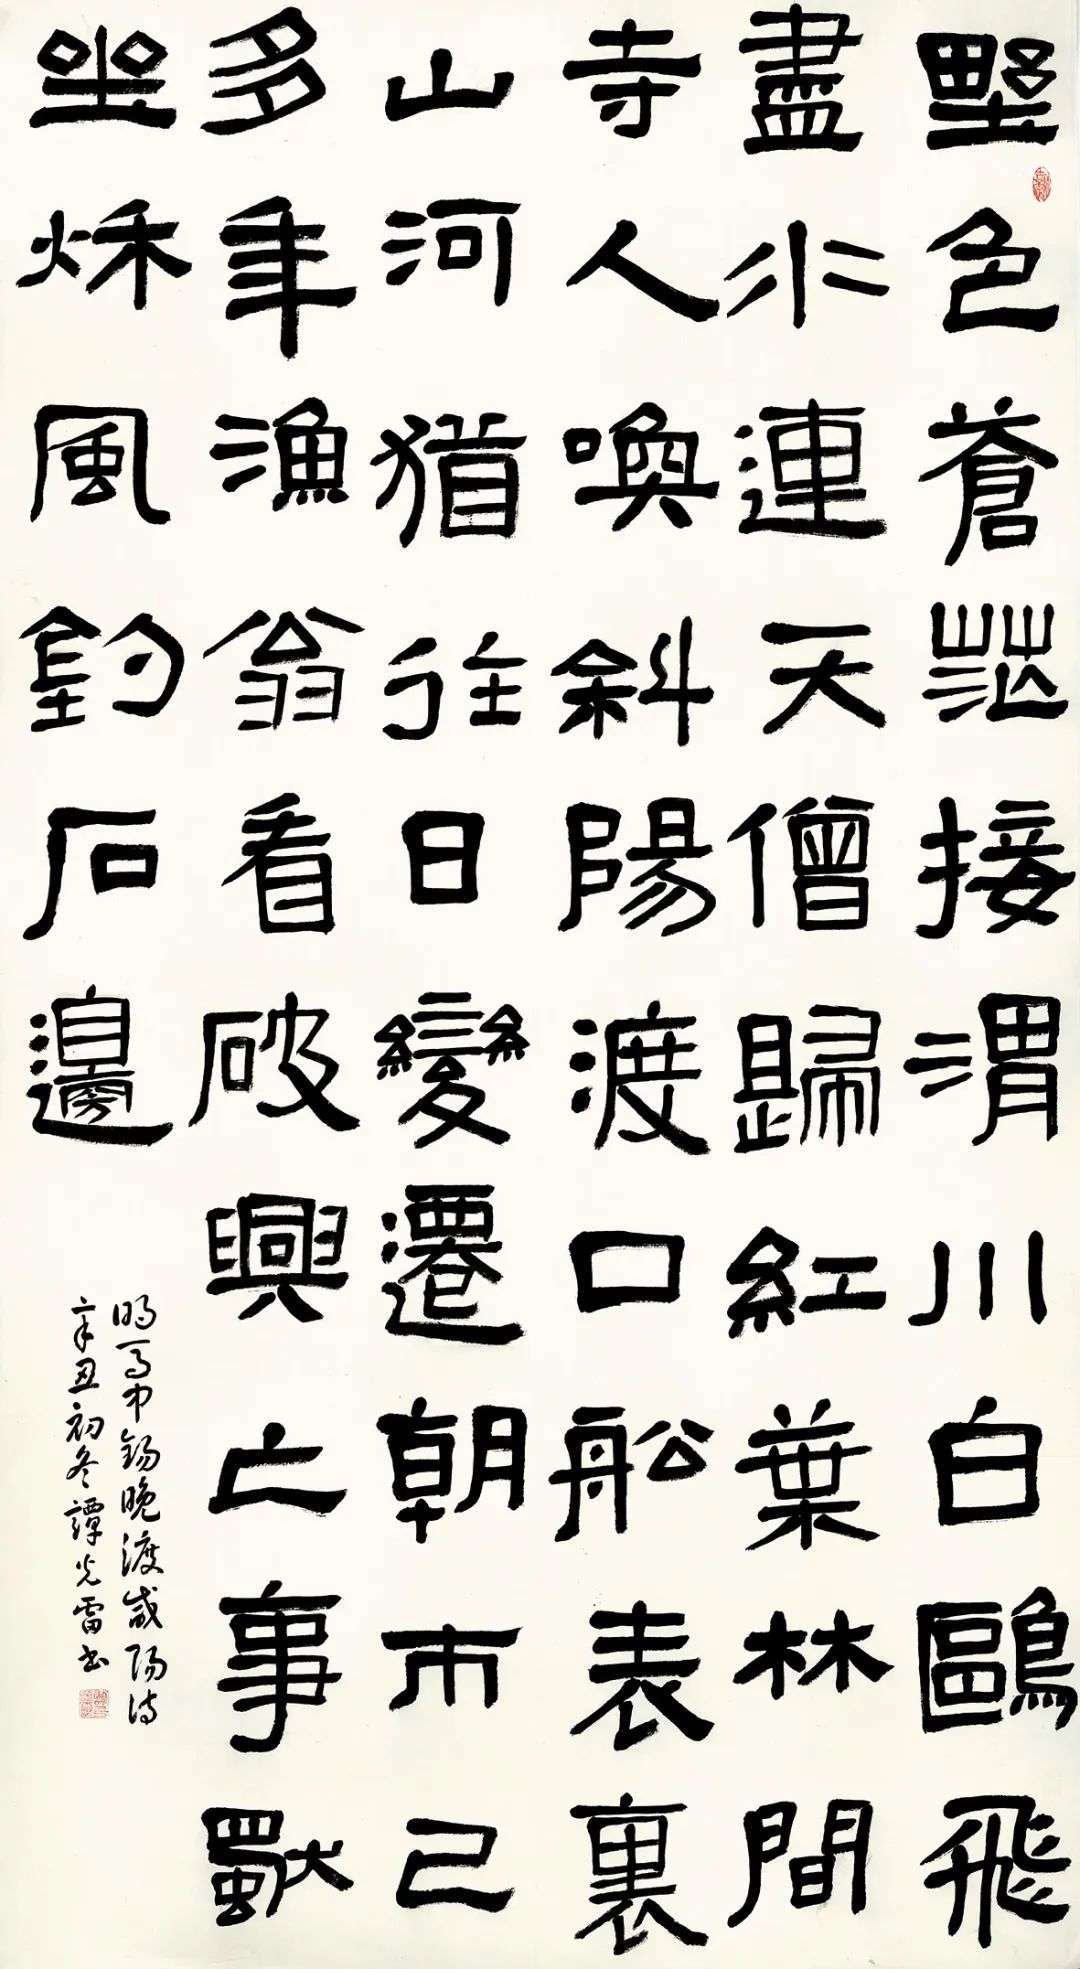 野色蒼茫接渭川白鷗飛
盡水連天僧歸紅葉林間
寺人喚斜陽渡口船表裏
山河猶往日變遷朝市已
多年漁翁看破興亡事獨
坐秋風釣石邊
明馬中錫晚渡咸陽诗
辛丑初冬譚光雷书